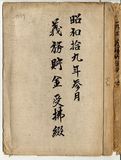 昭和拾九年参月
義務貯金受拂綴